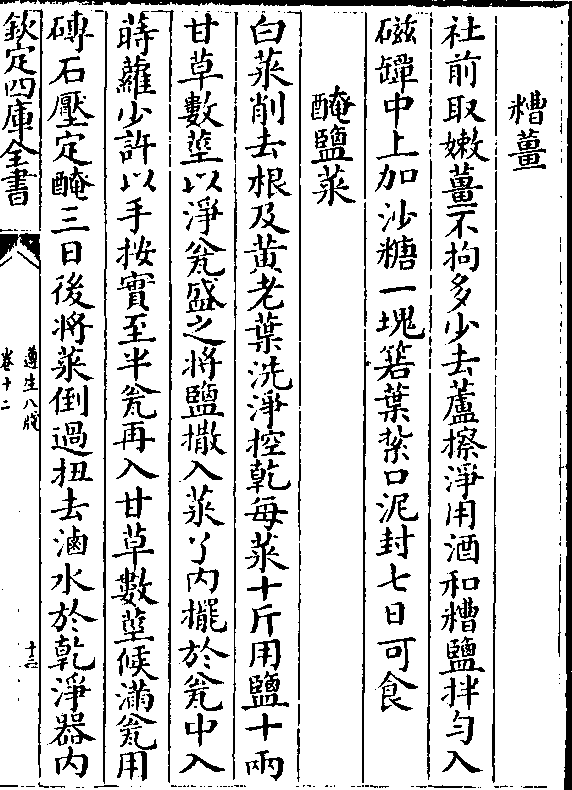 糟薑
社前取嫩薑不拘多少去蘆擦淨用酒和糟鹽拌勻入
磁罈中上加沙糖一塊箬葉紮口泥封七日可食
醃鹽菜
白菜削去根及黃老葉洗淨控乾每菜十斤用鹽十兩
甘草數莖以淨瓮盛之將鹽撒入菜丫內擺於瓮中入
蒔蘿少許以手按實至半瓮再入甘草數莖候滿瓮用
磚石壓定醃三日後將菜倒過扭去滷水於乾淨器內
欽定四庫全書
遵生八牋
卷十二
十二